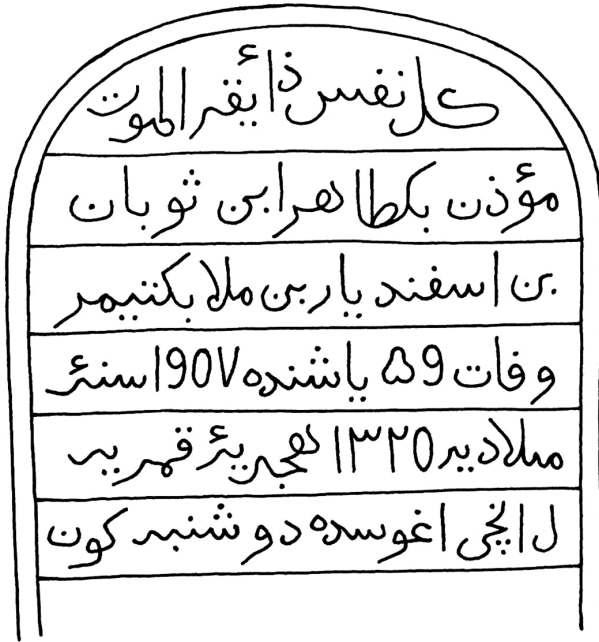 كل نفس ذائقة الموت
مؤذن بكطاهر ابن ثوبان
بن اسفنديار بن ملا بكتيمر
وفات ۵9 ياشنده 190۷ سنۀ
ميلاديه ۱۳۲۵ هجريۀ قمريه
اغوسده دوشنبه كون